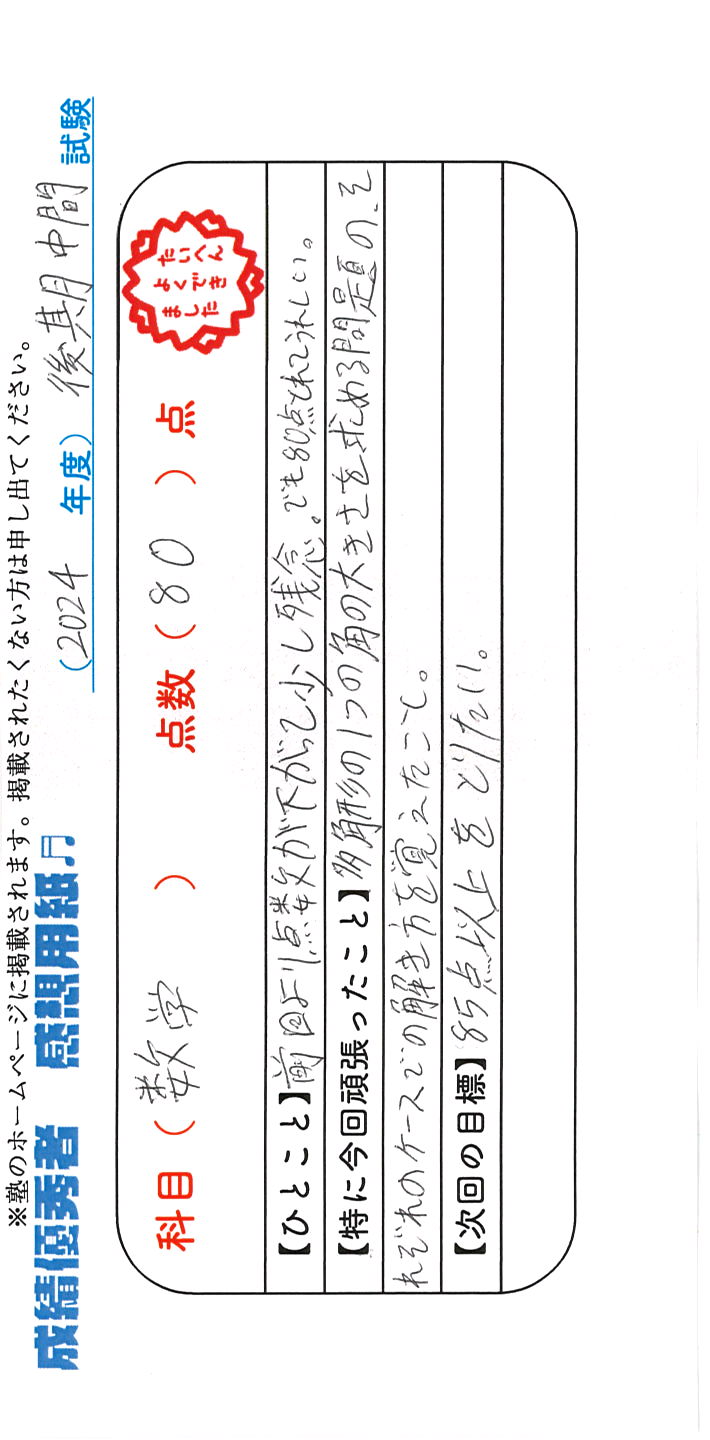 ※塾のホームページに掲載されます。掲載されたくない方は申し出てください。
成績優秀者 感想用紙♬ (2024 年度) 後期中間 試験
科目 ( 数学 ) 点数 ( 80 ) 点
たいへん
よくでき
ました
【ひとこと】前回より点数が下がって少し残念。でも80点とれてうれしい。
【特に今回頑張ったこと】多角形の1つの角の大きさを求める問題の、そ
れぞれのケースでの解き方を覚えたこと。
【次回の目標】85点以上をとりたい。